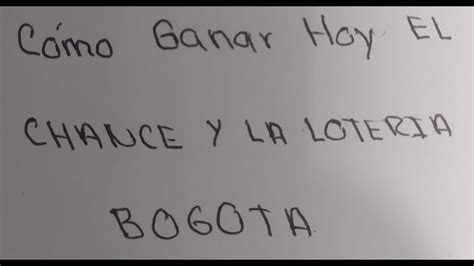 Cómo Ganar Hoy EL
CHANCE Y LA LOTERIA
BOGOTA